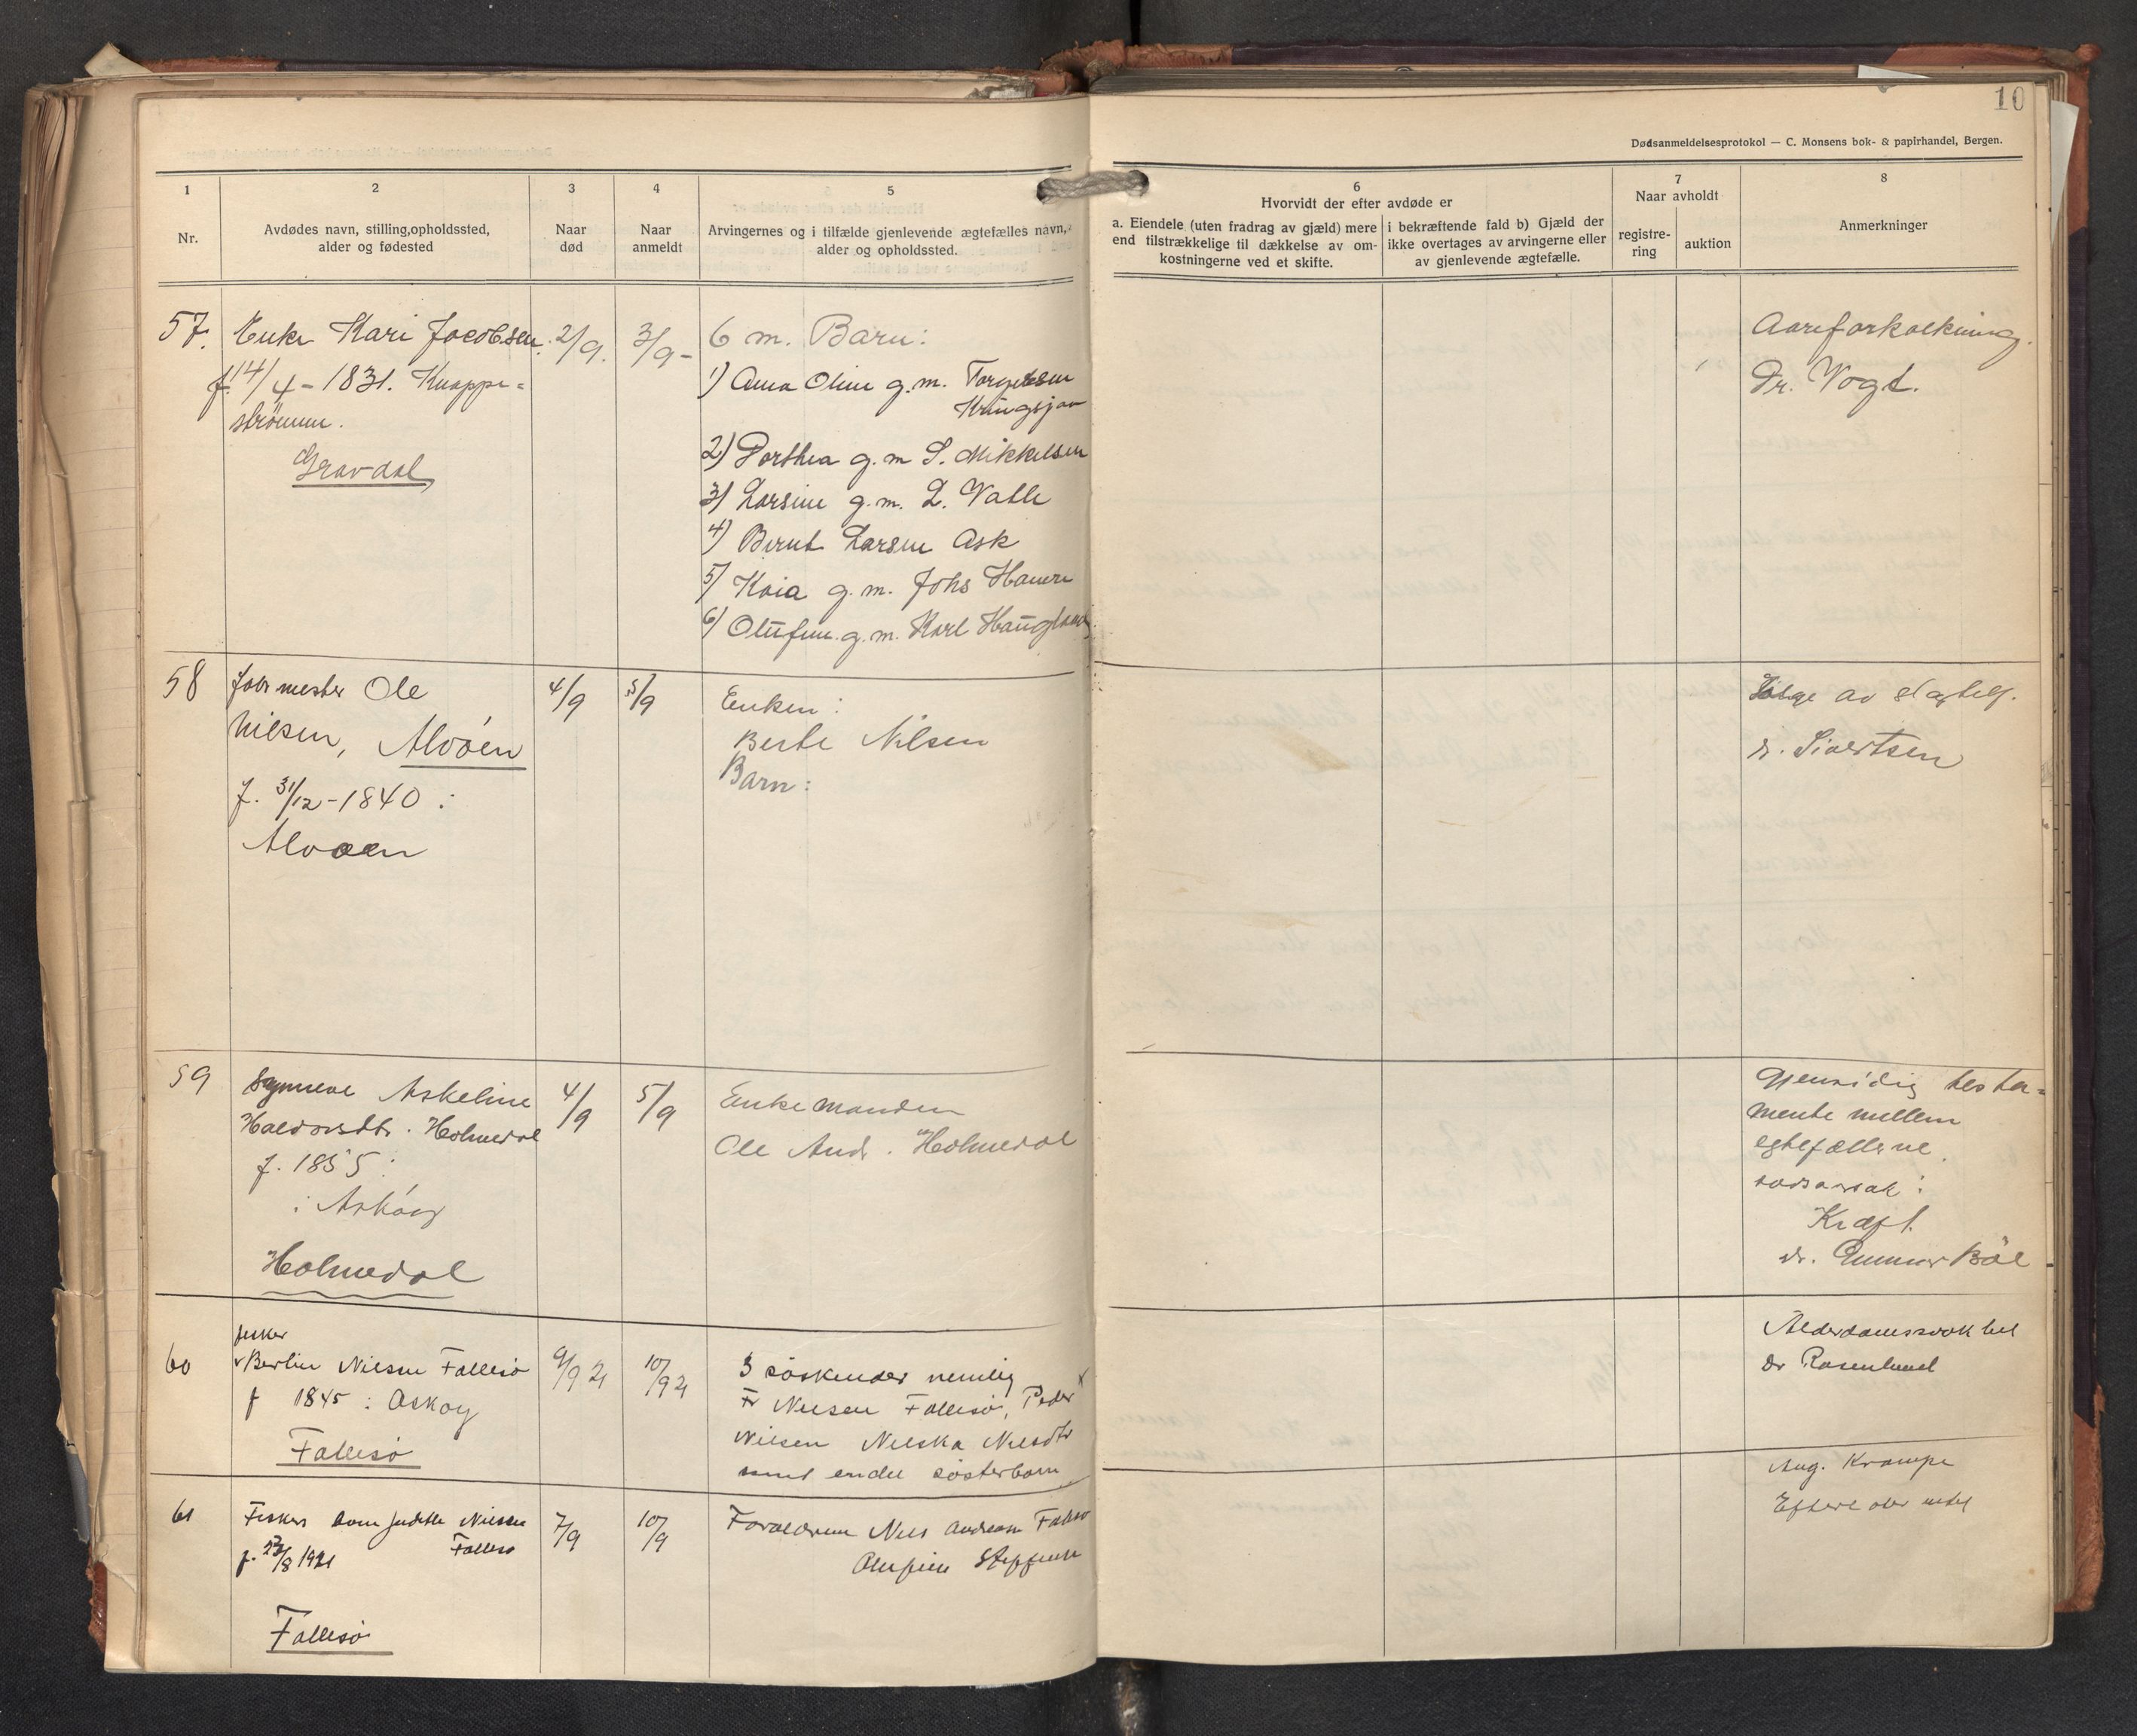 10
Dødsanmeldelsesprotokol — C. Monsens bok- & papirhandel, Bergen.
1
2
3
4
5
6
7
8
Nr.
Avdødes navn, stilling, opholdssted,
alder og fødested
Naar
død
Naar
anmeldt
Arvingernes og i tilfælde gjenlevende ægtefælles navn,
alder og opholdssted.
Hvorvidt der efter avdøde er
a. Eiendele (uten fradrag av gjæld) mere
end tilstrækkelige til dækkelse av om-
kostningerne ved et skifte.
i bekræftende fald b) Gjæld der
ikke overtages av arvingerne eller
av gjenlevende ægtefælle.
Naar avholdt
registre-
ring
auktion
Anmerkninger
57.
Enke Kari Jacobsen
f. 14/4 - 1831. Knappe-
strömmen.
Gravdal
2/9.
3/9-
6 m. Barn:
1) Anna Oline g.m. Torgersen
Kringsjaa
2) Dorthea g.m S. Mikkelsen
3) Larsine g.m. L. Vatle
4) Bernt Larsen Ask
5) Kaia g.m. Johs Hanen
6) Olufine g.m. Karl Haugland
Aareforkalkning.
Dr. Vogt.
58
Formester Ole
Nilsen, Alvöen
f. 31/12-1840 :
Alvöen
4/9
5/9
Enken :
Berte Nilsen
Barn :
Følge av slagtilf.
dr. Sivertsen
59
Synneve Askeline
Haldorsdtr. Holmedal
f. 1855 :
: Asköy
Holmedal
4/9
5/9
Enkemanden
Ole And. Holmedal
Gjensidig testa-
mente mellem
egtefællerne.
dødsarsak :
Kræft
dr. Gunnar Böe
60
fisker
Berlin Nilsen Fallesö
f 1845 : Askøy
Fallesö
9/9 21
10/9 21
3 söskender nemlig
Fr Nilsen Fallesö, Peder
Nilsen Nilska Nilsdtr
samt endel sösterbarn
Alderdomssvakhet
Dr Rosenlund
61
Fiskers barn Judithe Nilsen
Fallesö
f. 23/8 1921
Fallesö
7/9
10/9
Forældrene Nils Andreas Fallesö
Olufine Steffensen
Ang. Krampe